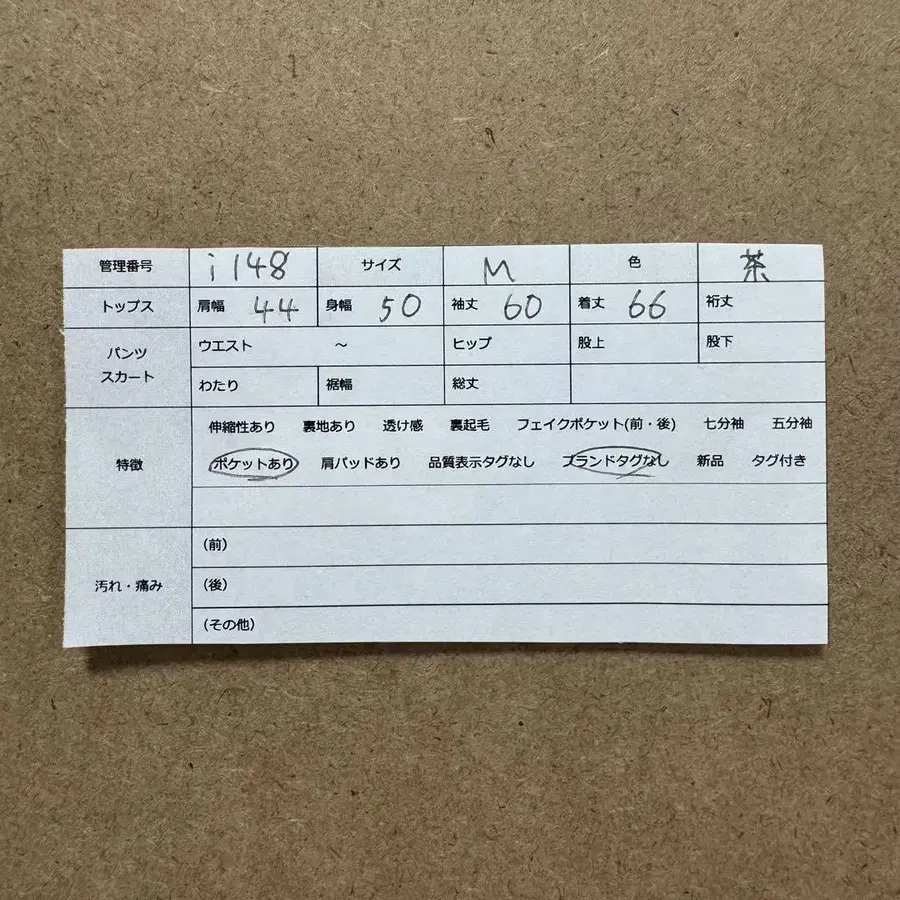 管理番号 i148 サイズ M 色 茶
トップス 肩幅 44 身幅 50 袖丈 60 着丈 66 裄丈
パンツ スカート ウエスト ～ ヒップ 股上 股下
わたり 裾幅 総丈
特徴 伸縮性あり 裏地あり 透け感 裏起毛 フェイクポケット(前・後) 七分袖 五分袖
ポケットあり 肩パッドあり 品質表示タグなし ブランドタグなし 新品 タグ付き
汚れ・痛み (前)
(後)
(その他)